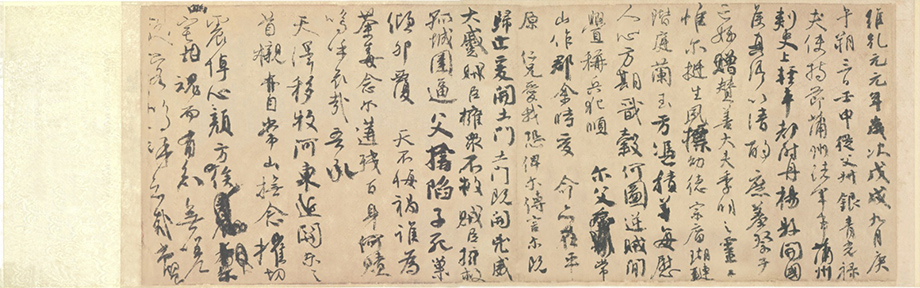 維乾元元年歲次戊戌九月庚
午朔三日壬申從父叔銀青光祿
夫使持節蒲州諸軍事蒲州
刺史上輕車都尉丹楊縣開國
侯真卿以清酌庶羞祭于
亡姪贈贊善大夫季明之靈曰
惟爾挺生夙標幼德宗廟瑚璉
階庭蘭玉方憑積善每慰
人心方期戩穀何圖逆賊閒
釁稱兵犯順 爾父 常
山作郡余時受 命亦在平
原 仁兄愛我恐俾爾傳言爾既
歸止爰開土門土門既開兇威
大蹙賊臣擁眾不救賊臣擁救
孤城圍逼父擒陷子死巢
傾卵覆 天不悔禍誰為
荼毒念爾遘殘百身何贖
嗚呼哀哉吾承
天澤移牧河東近
首櫬亦自常山 念摧切
震悼心顏方俟
魂而有知無嗟
嗚呼哀哉尚饗